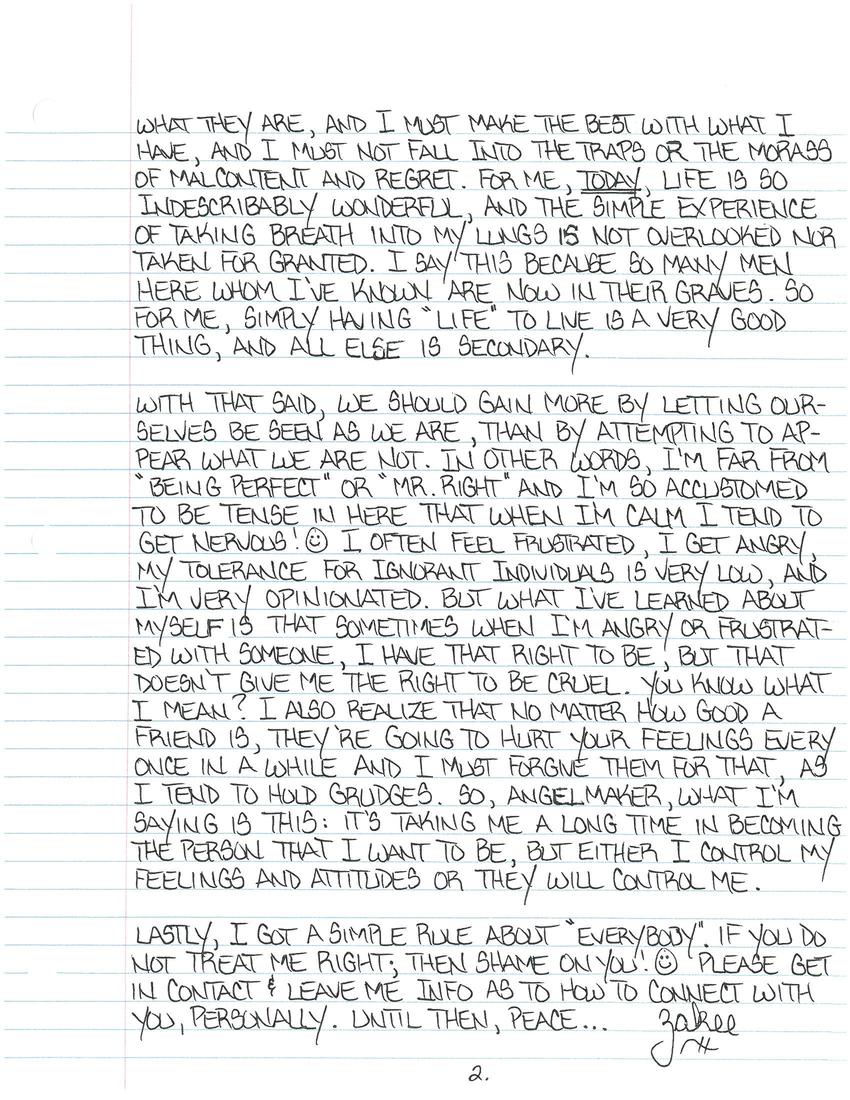 WHAT THEY ARE, AND I MUST MAKE THE BEST WITH WHAT I
HAVE, AND I MUST NOT FALL INTO THE TRAPS OR THE MORASS
OF MALCONTENT AND REGRET. FOR ME, TODAY, LIFE IS SO
INDESCRIBABLY WONDERFUL, AND THE SIMPLE EXPERIENCE
OF TAKING BREATH INTO MY LUNGS IS NOT OVERLOOKED NOR
TAKEN FOR GRANTED. I SAY THIS BECAUSE SO MANY MEN
HERE WHOM I'VE KNOWN ARE NOW IN THEIR GRAVES. SO
FOR ME, SIMPLY HAVING "LIFE" TO LIVE IS A VERY GOOD
THING, AND ALL ELSE IS SECONDARY.
WITH THAT SAID, WE SHOULD GAIN MORE BY LETTING OUR-
SELVES BE SEEN AS WE ARE, THAN BY ATTEMPTING TO AP-
PEAR WHAT WE ARE NOT. IN OTHER WORDS, I'M FAR FROM
"BEING PERFECT" OR "MR. RIGHT" AND I'M SO ACCUSTOMED
TO BE TENSE IN HERE THAT WHEN I'M CALM I TEND TO
GET NERVOUS! ☺ I OFTEN FEEL FRUSTRATED, I GET ANGRY,
MY TOLERANCE FOR IGNORANT INDIVIDUALS IS VERY LOW, AND
I'M VERY OPINIONATED. BUT WHAT I'VE LEARNED ABOUT
MYSELF IS THAT SOMETIMES WHEN I'M ANGRY OR FRUSTRAT-
ED WITH SOMEONE, I HAVE THAT RIGHT TO BE, BUT THAT
DOESN'T GIVE ME THE RIGHT TO BE CRUEL. YOU KNOW WHAT
I MEAN? I ALSO REALIZE THAT NO MATTER HOW GOOD A
FRIEND IS, THEY'RE GOING TO HURT YOUR FEELINGS EVERY
ONCE IN A WHILE AND I MUST FORGIVE THEM FOR THAT, AS
I TEND TO HOLD GRUDGES. SO, ANGELMAKER, WHAT I'M
SAYING IS THIS: IT'S TAKING ME A LONG TIME IN BECOMING
THE PERSON THAT I WANT TO BE, BUT EITHER I CONTROL MY
FEELINGS AND ATTITUDES OR THEY WILL CONTROL ME.
LASTLY, I GOT A SIMPLE RULE ABOUT "EVERYBODY". IF YOU DO
NOT TREAT ME RIGHT; THEN SHAME ON YOU! ☺ PLEASE GET
IN CONTACT & LEAVE ME INFO AS TO HOW TO CONNECT WITH
YOU, PERSONALLY. UNTIL THEN, PEACE... Zakee
2.